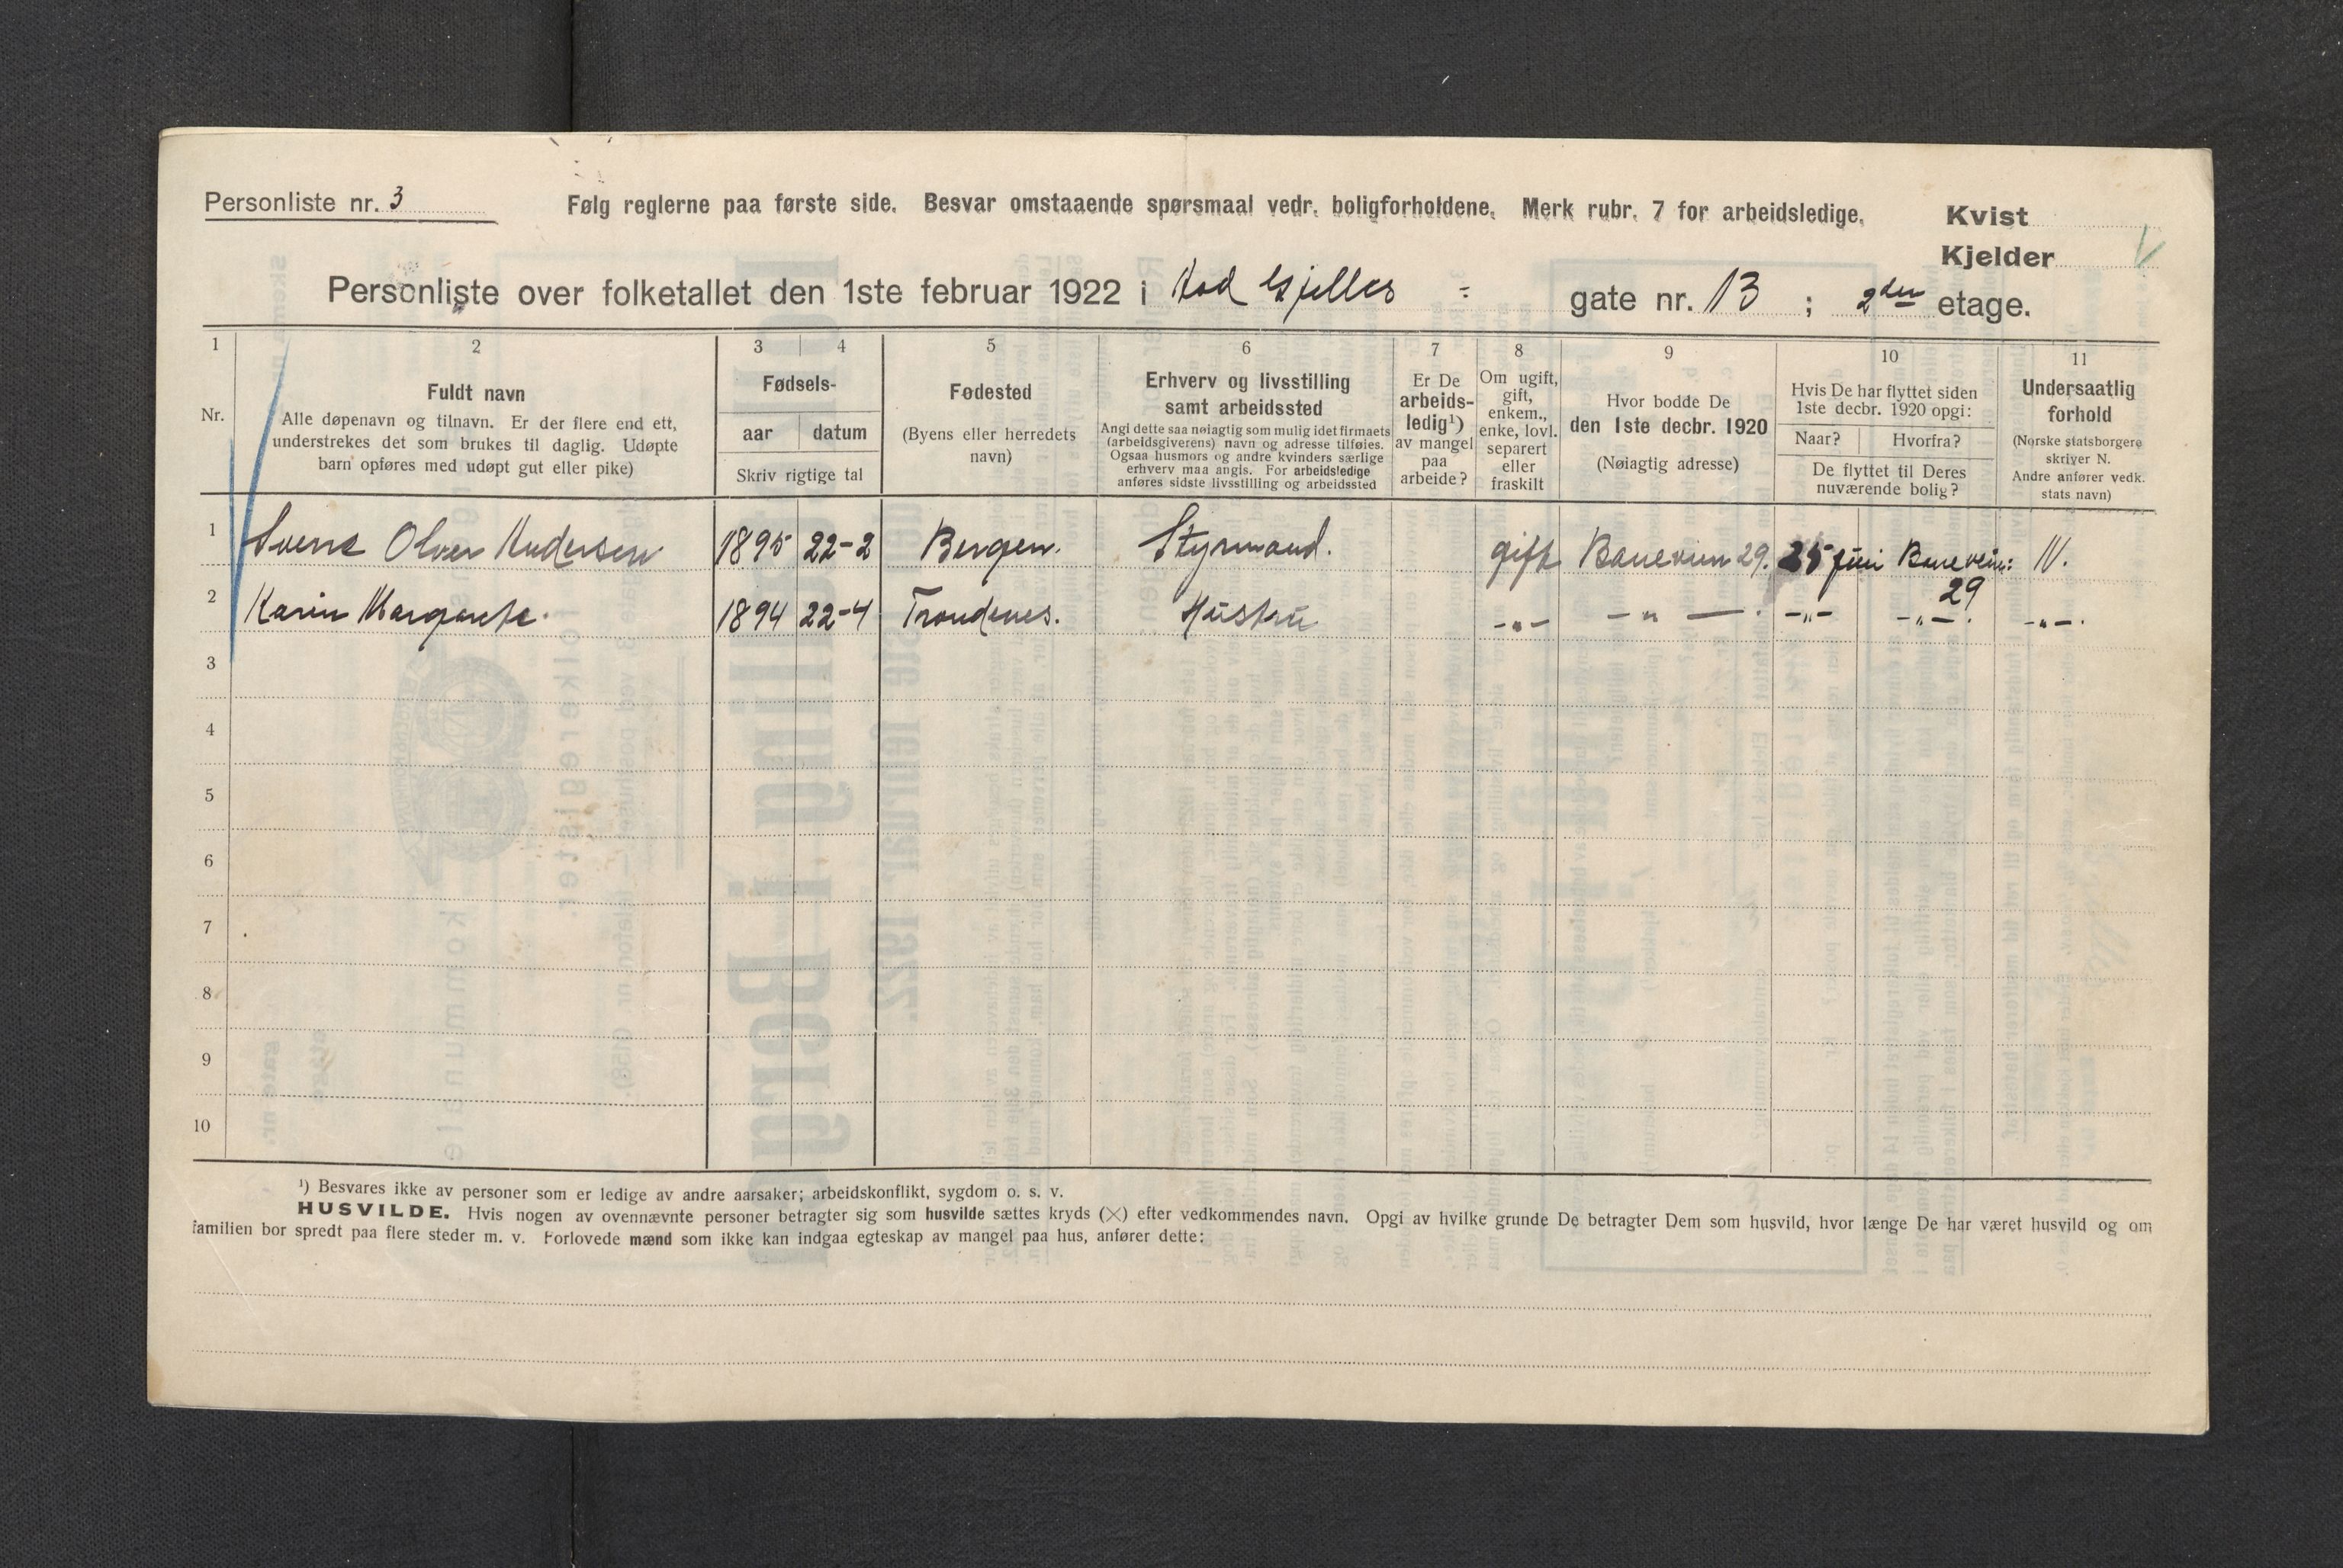 Personliste nr. 3
Følg reglerne paa første side. Besvar omstaaende spørsmaal vedr. boligforholdene. Merk rubr. 7 for arbeidsledige.
Kvist
Kjelder
Personliste over folketallet den 1ste februar 1922 i Rad Gjelles - gate nr. 13 ; 2den etage.
1 2 3 4 5 6 7 8 9 10 11
Nr.
Fuldt navn
Alle døpenavn og tilnavn. Er der flere end ett,
understrekes det som brukes til daglig. Udøpte
barn opføres med udøpt gut eller pike)
Fødsels-
aar datum
Skriv rigtige tal
Fødested
(Byens eller herredets
navn)
Erhverv og livsstilling
samt arbeidssted
Angi dette saa nøiagtig som mulig idet firmaets
(arbeidsgiverens) navn og adresse tilføies.
Ogsaa husmors og andre kvinders særlige
erhverv maa angis. For arbeidsledige
anføres sidste livsstilling og arbeidssted
Er De
arbeids-
ledig¹)
av mangel
paa
arbeide?
Om ugift,
gift,
enkem.,
enke, lovl.
separert
eller
fraskilt
Hvor bodde De
den 1ste decbr. 1920
(Nøiagtig adresse)
Hvis De har flyttet siden
1ste decbr. 1920 opgi:
Naar? Hvorfra?
De flyttet til Deres
nuværende bolig?
Undersaatlig
forhold
(Norske statsborgere
skriver N.
Andre anfører vedk.
stats navn)
1 Sverre Andersen 1895 22-2 Bergen. Styrmand. gift Baneveien 29. 25 juni Baneveien: 29 N.
2 Karin Margarete. 1894 22-4 Trondenes. Hustru -"- -"- -"- -"- -"-.
3
4
5
6
7
8
9
10
¹) Besvares ikke av personer som er ledige av andre aarsaker; arbeidskonflikt, sygdom o. s. v.
HUSVILDE. Hvis nogen av ovennævnte personer betragter sig som husvilde sættes kryds (×) efter vedkommendes navn. Opgi av hvilke grunde De betragter Dem som husvild, hvor længe De har været husvild og om
familien bor spredt paa flere steder m. v. Forlovede mænd som ikke kan indgaa egteskap av mangel paa hus, anfører dette: